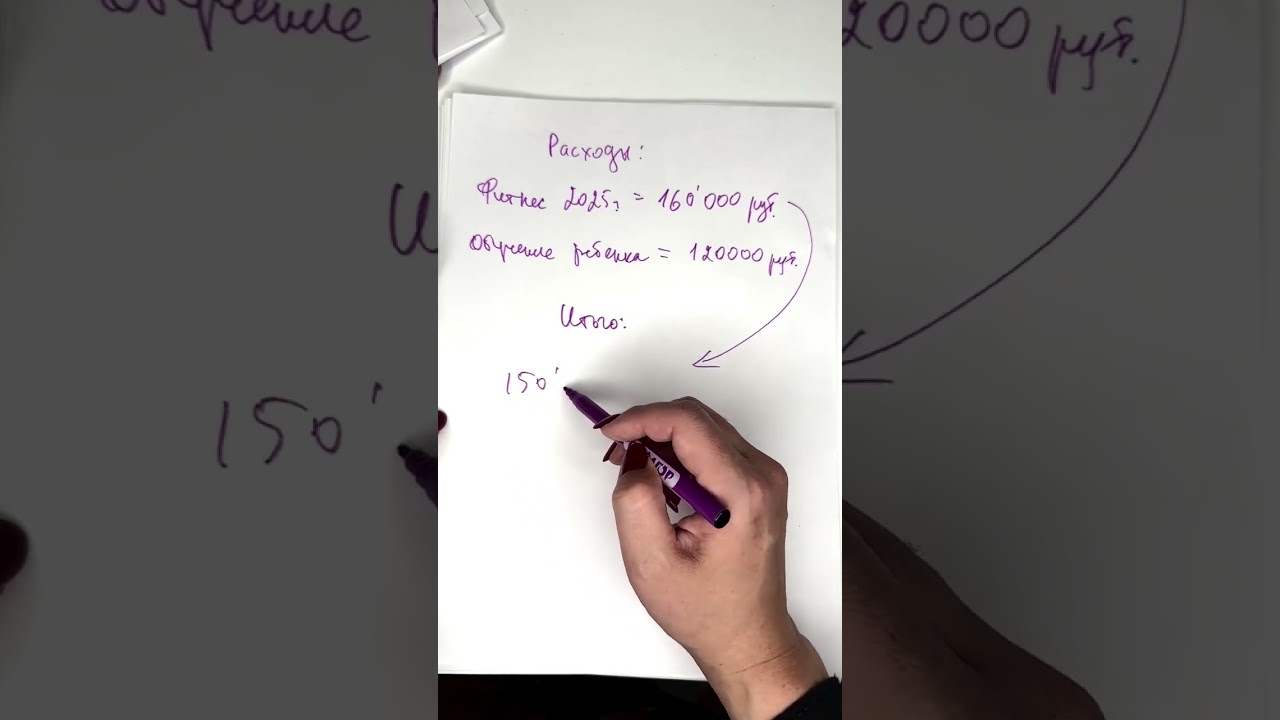 Расходы:
Фитнес 2025г = 160'000 руб.
Обучение ребенка = 120000 руб.
Итого:
150'